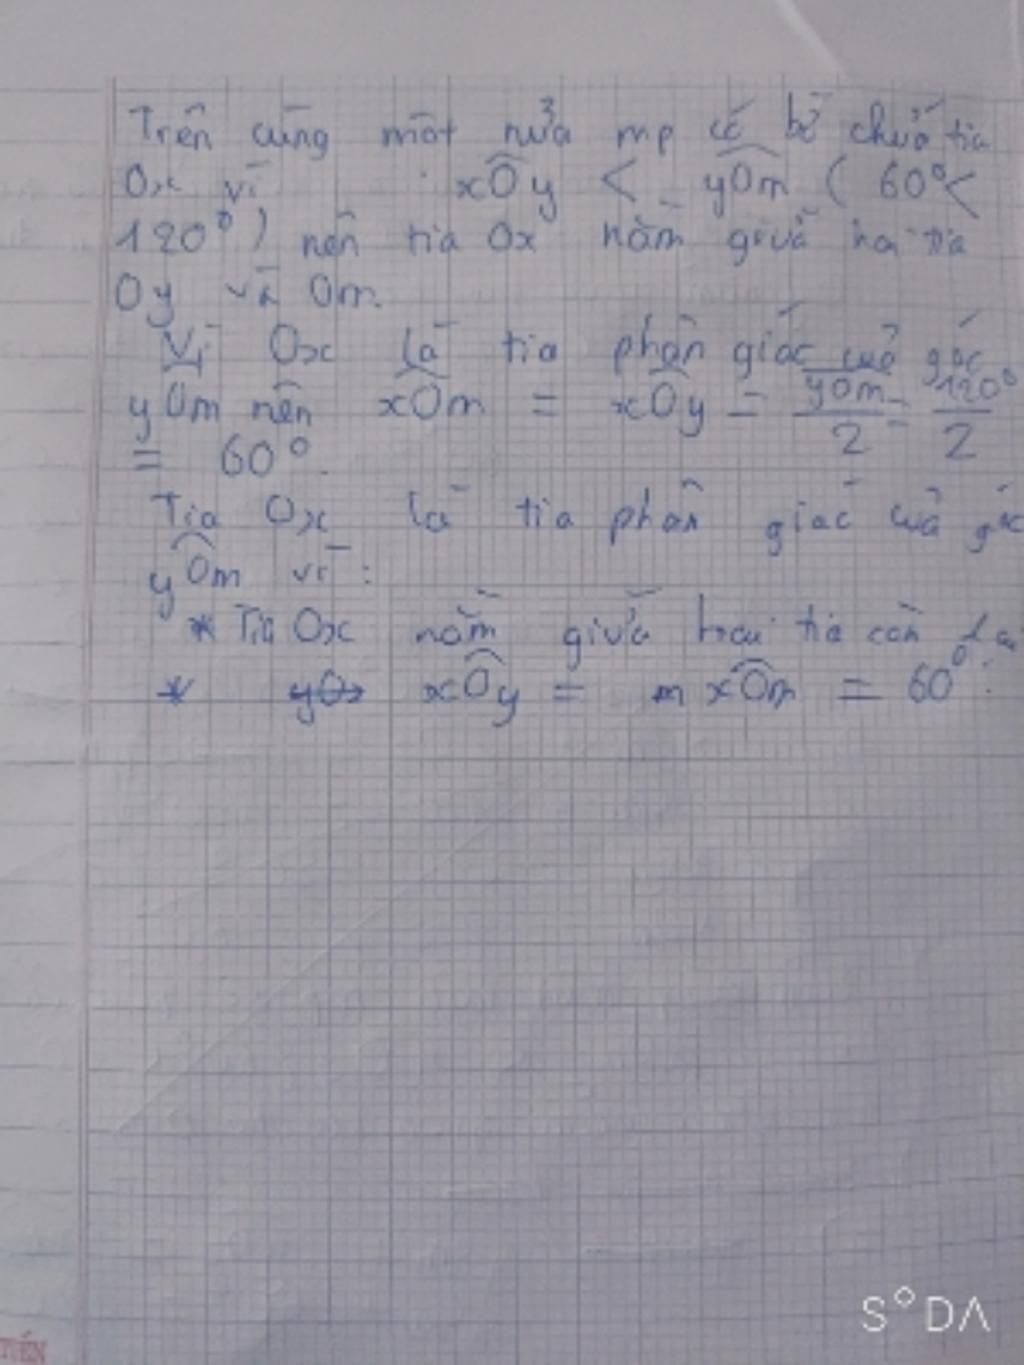 Trên cùng một nửa mp có bờ chứa tia
Ox vì xOy < yOm ( 60° <
120° ) nên tia Ox nằm giữa hai tia
Oy và Om.
Vì Ox là tia phân giác của góc
yOm nên xOm = xOy = yOm/2 = 120°/2
= 60°.
Tia Ox là tia phân giác của góc
yOm vì :
* Tia Ox nằm giữa hai tia còn lại
* xOy = xOm = 60°.
S°DA